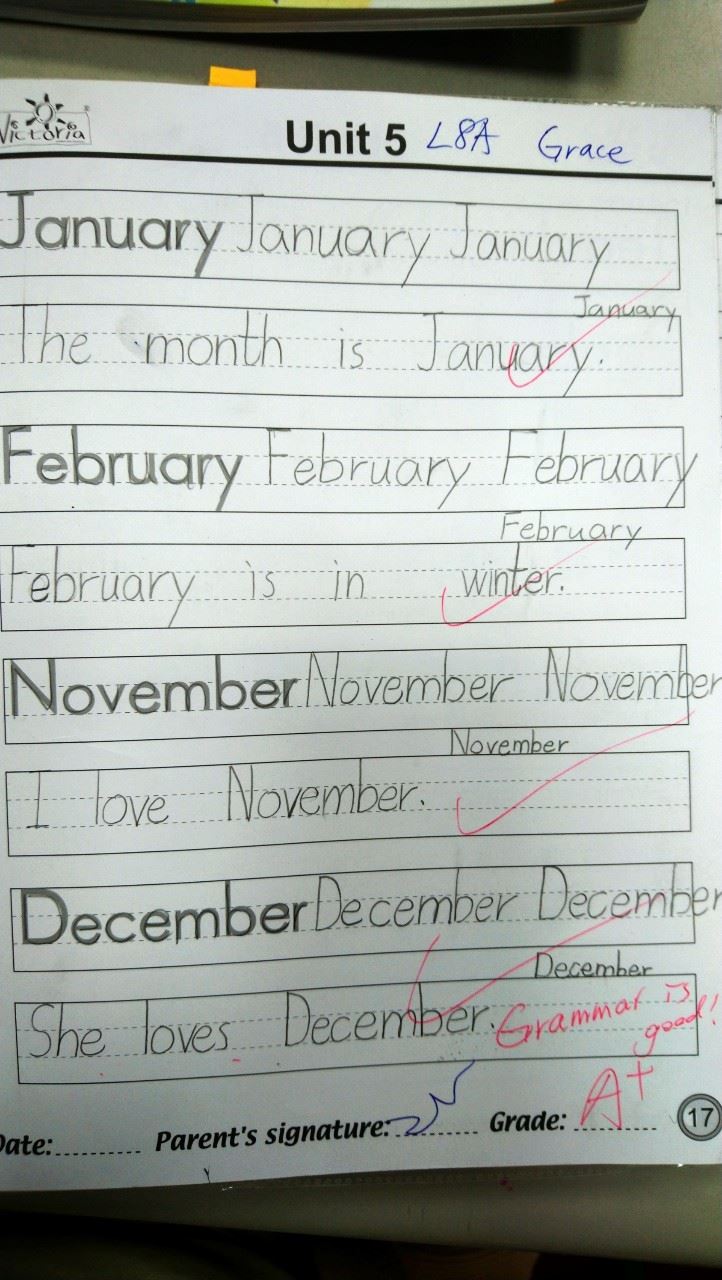 Victoria
Unit 5 L8A Grace
January January January
January
The month is January.
February February February
February
February is in winter.
November November November
November
I love November.
December December December
December
She loves December. Grammar is good!
Date: Parent's signature: Grade: A+ 17